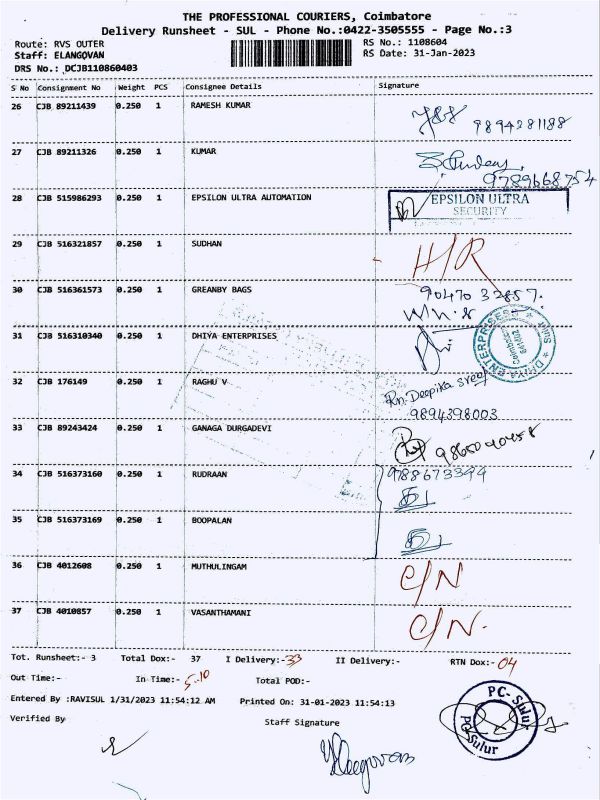 THE PROFESSIONAL COURIERS, Coimbatore
Delivery Runsheet - SUL - Phone No.:0422-3505555 - Page No.:3
Route: RVS OUTER
Staff: ELANGOVAN
DRS No.: DCJB110860403
RS No.: 1108604
RS Date: 31-Jan-2023
S No Consignment No Weight PCS Consignee Details Signature
26 CJB 89211439 0.250 1 RAMESH KUMAR
9894281188
27 CJB 89211326 0.250 1 KUMAR
9789668754
28 CJB 515986293 0.250 1 EPSILON ULTRA AUTOMATION
EPSILON ULTRA
SECURITY
29 CJB 516321857 0.250 1 SUDHAN H/R
30 CJB 516361573 0.250 1 GREANBY BAGS
90470 32857.
31 CJB 516310340 0.250 1 DHIYA ENTERPRISES
DHIYA ENTERPRISES
Coimbatore
32 CJB 176149 0.250 1 RAGHU V
Rn. Deepika sree
9894398003
33 CJB 89243424 0.250 1 GANAGA DURGADEVI
34 CJB 516373160 0.250 1 RUDRAAN
9788673394
35 CJB 516373169 0.250 1 BOOPALAN
36 CJB 4012608 0.250 1 MUTHULINGAM C/N
37 CJB 4010857 0.250 1 VASANTHAMANI C/N.
Tot. Runsheet:- 3 Total Dox:- 37 I Delivery:- 33 II Delivery:- RTN Dox:- 04
Out Time:- In Time:- 5.10 Total POD:-
Entered By :RAVISUL 1/31/2023 11:54:12 AM Printed On: 31-01-2023 11:54:13
Verified By Staff Signature
PC- Sulur
PC Sulur